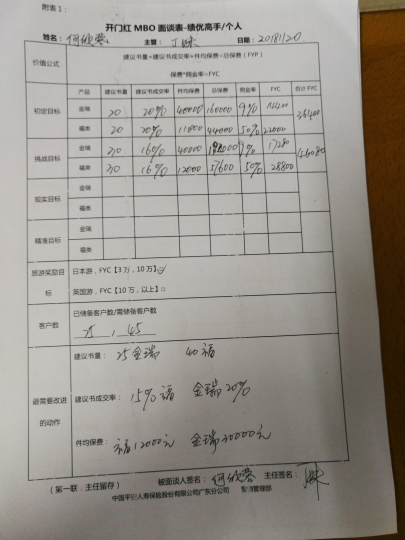 附表1：
开门红 MBO 面谈表-绩优高手/个人
姓名：何欣蓉 主管： 日期：20181120
价值公式 建议书量*建议书成交率*件均保费=总保费（FYP）
保费*佣金率=FYC
产品 建议书量 建议书成交率 件均保费 总保费 佣金率 FYC 合计 FYC
初定目标 金瑞 20 20% 40000 160000 9% 14400
福类 20 20% 11000 44000 50% 22000
挑战目标 金瑞 16% 40000 9% 17280 46080
福类 30 16% 12000 57600 50% 28800
现实目标 金瑞
福类
精准目标 金瑞
福类
旅游奖励目标 日本游，FYC【3万，10万】☑
英国游，FYC【10万，以上】□
客户数 已储备客户数/需储备客户数
25 / 45
最需要改进的动作
建议书量： 25金瑞 40福
建议书成交率： 15%福 金瑞20%
件均保费： 福12000元 金瑞30000元
（第一联：主任留存） 被面谈人签名：何欣蓉 主任签名：
中国平安人寿保险股份有限公司广东分公司 管理部